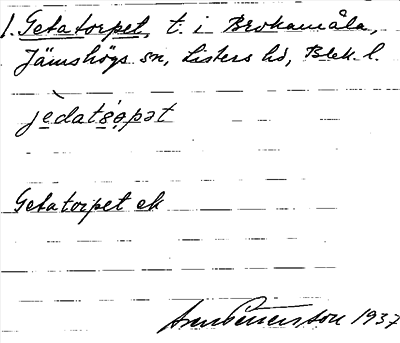 1. Getatorpet, t. i Brokamåla,
Jämshögs sn, Listers hd, Blek. l.
jèdatså̩pət
Getatorpet ek
1937